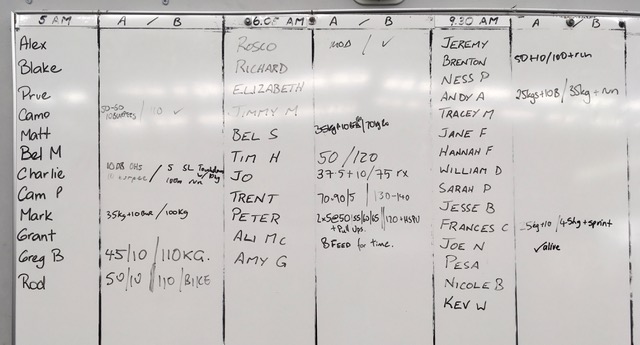 5 AM A / B
Alex
Blake
Prue
Camo 50-60 / 110 ✓
Matt
Bel M
Charlie 10 DB OHS / 5 SL
100m run
Cam P
Mark 35kg+10 / 100kg
Grant
Greg B 45/10 / 110KG.
Rod 50/10 / 110 / BIKE
6.05 AM A / B
Rosco MOD / ✓
Richard
Elizabeth
Jimmy M
Bel S
Tim H 50 / 120
Jo 37.5+10 / 75 rx
Trent 70.90/5 / 130-140
Peter 2x5@50/55/60/65 / 120 + HSPU
+ Pull ups.
Ali Mc 8 FEED for time.
Amy G
9.30 AM A / B
Jeremy
Brenton 50+10/100+run
Ness P
Andy A 25kgs+10B / 35kg + run
Tracey M
Jane F
Hannah F
William D
Sarah P
Jesse B
Frances C 5kg+10 / 45kg+sprint
Joe N ✓alive
Pesa
Nicole B
Kev W